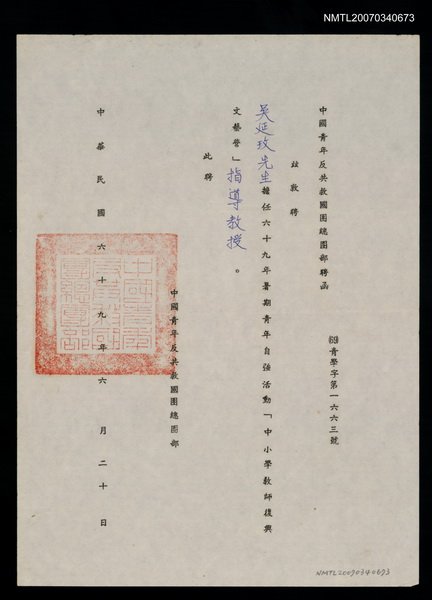 NMTL20070340673
中國青年反共救國團總團部聘函
(69)青學字第一六六三號
茲敦聘
吳延玫先生擔任六十九年暑期青年自強活動「中小學教師復興
文藝營」指導教授。
此聘
中國青年反共救國團總團部
中華民國六十九年六月二十日
NMTL20070340673